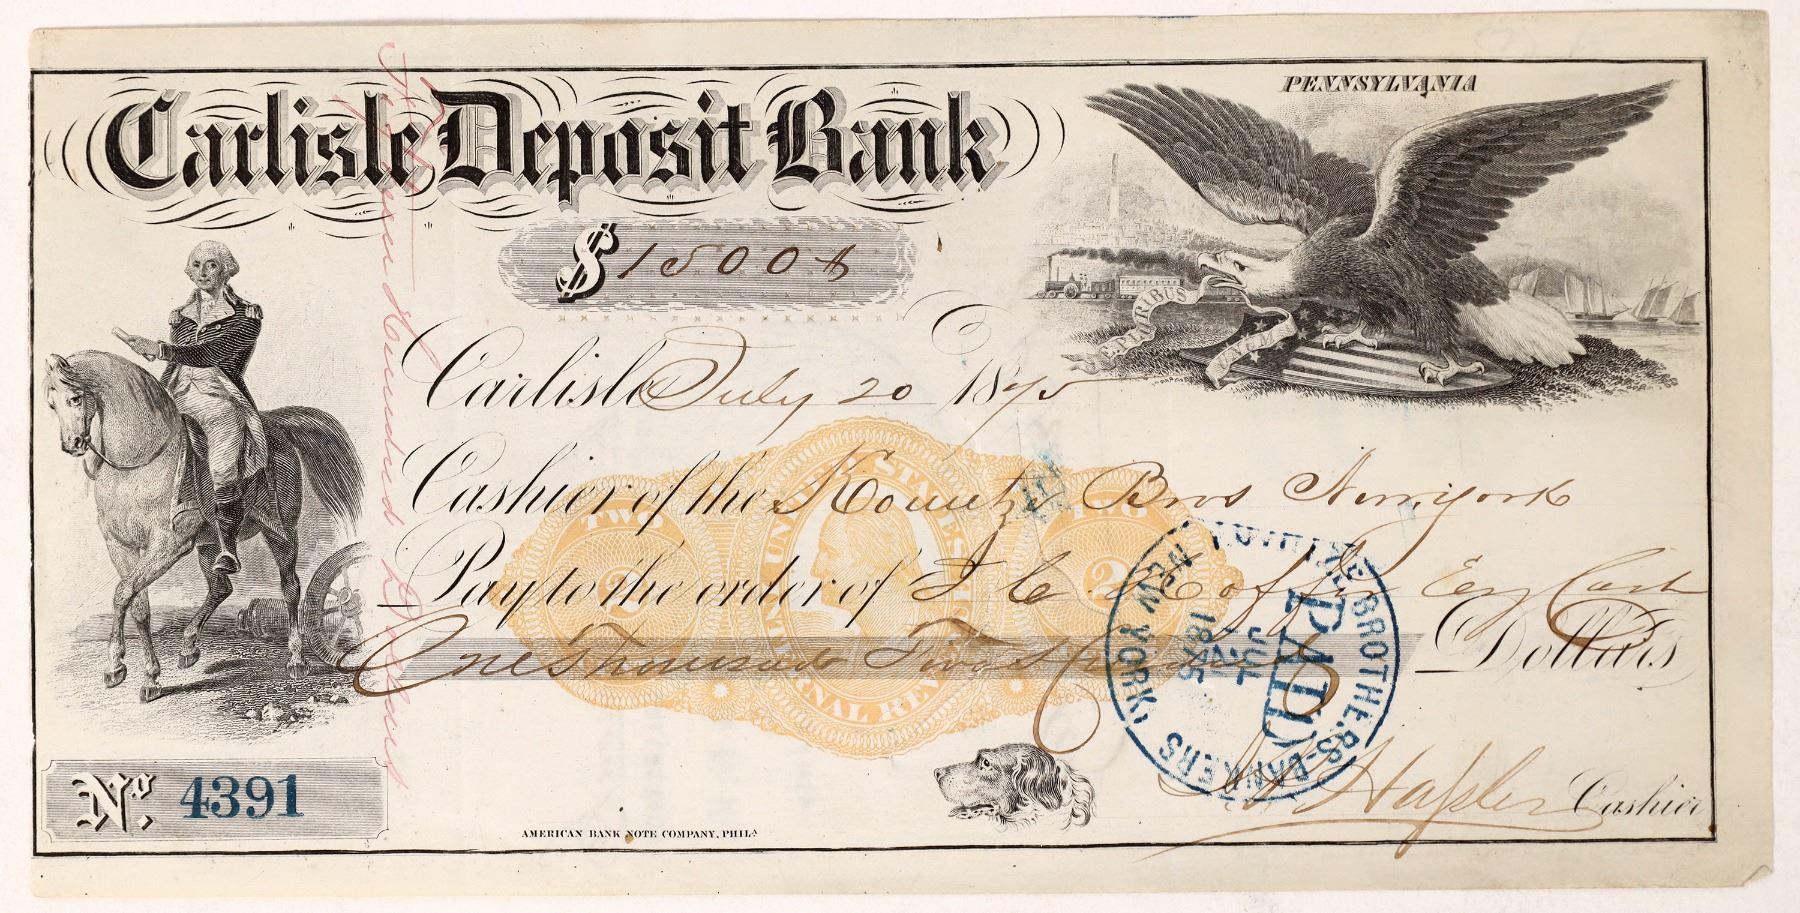 PENNSYLVANIA
Carlisle Deposit Bank
$1500
PLURIBUS
Carlisle July 20 1875
Cashier of the Kountze Bros New york
Pay to the order of J C Hoffer Esq Cash
One Thousand Dollars
TWO UNITED STATES
2 2
INTERNAL REVENUE
KOUNTZE BROTHERS-BANKERS NEW YORK
PAID
JUL 21 1875
Hundred Dollars
No. 4391
AMERICAN BANK NOTE COMPANY, PHILA
Cashier